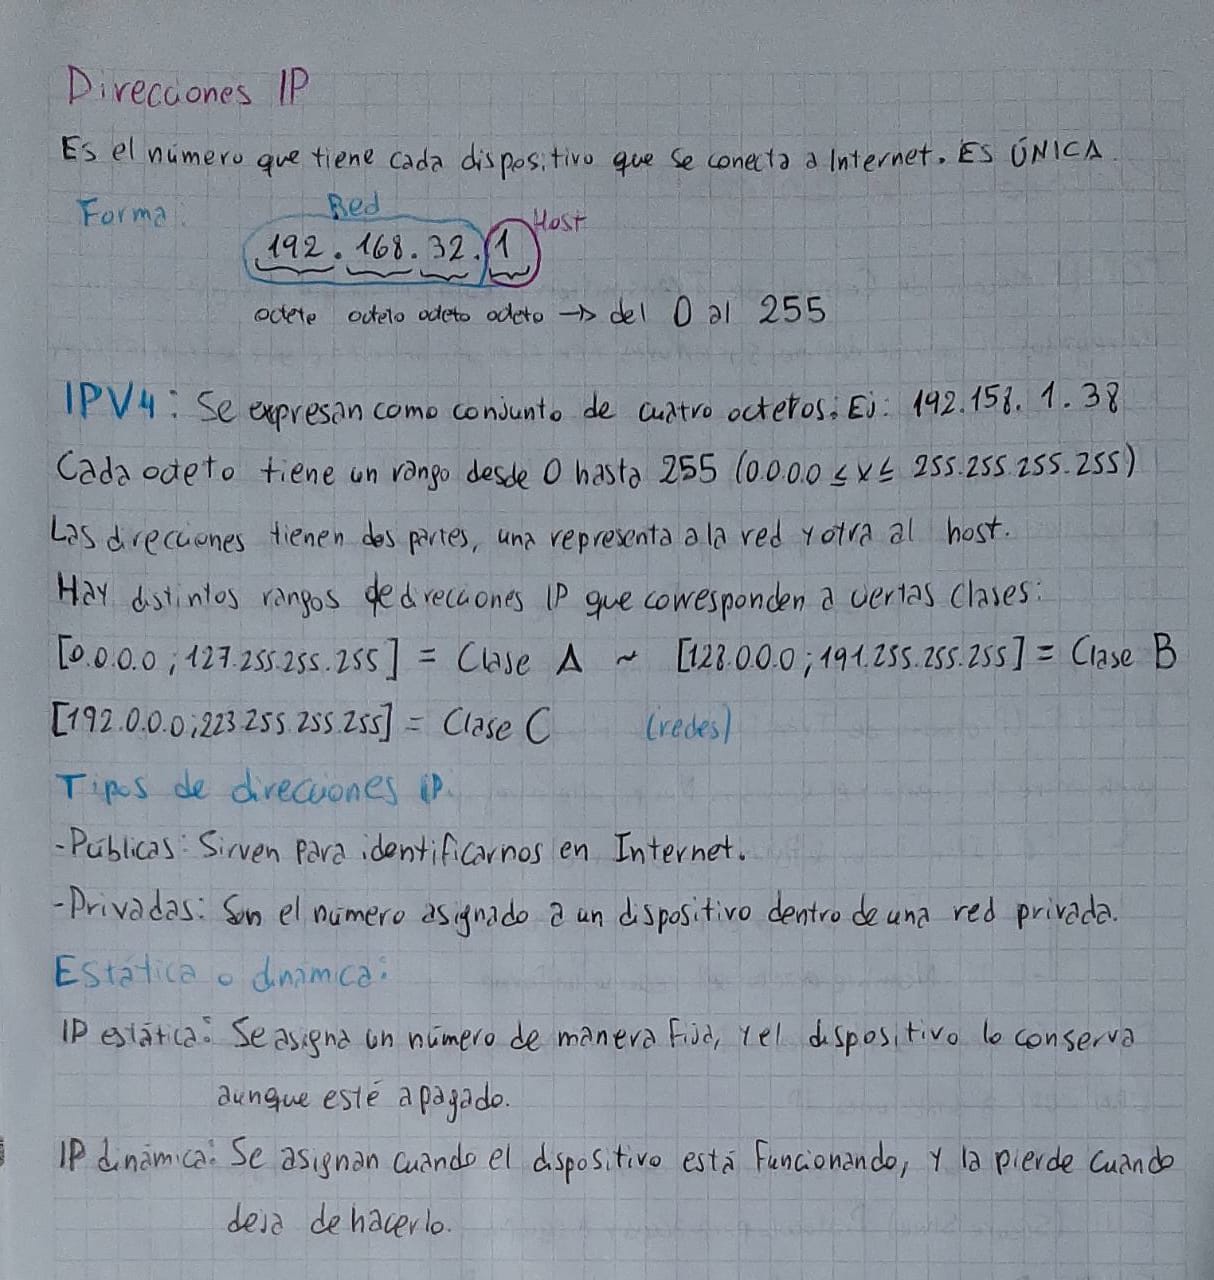 Direcciones IP
Es el número que tiene cada dispositivo que se conecta a Internet. ES ÚNICA
Forma: Red Host
192.168.32.1
octete octeto octeto octeto → del 0 al 255
IPV4: Se expresan como conjunto de cuatro octetos. Ej: 192.158.1.38
Cada octeto tiene un rango desde 0 hasta 255 (0.0.0.0 ≤ x ≤ 255.255.255.255)
Las direcciones tienen dos partes, una representa a la red y otra al host.
Hay distintos rangos de direcciones IP que corresponden a ciertas clases:
[0.0.0.0 ; 127.255.255.255] = Clase A ~ [128.0.0.0 ; 191.255.255.255] = Clase B
[192.0.0.0 ; 223.255.255.255] = Clase C (redes)
Tipos de direcciones IP.
-Públicas: Sirven para identificarnos en Internet.
-Privadas: Son el número asignado a un dispositivo dentro de una red privada.
Estática o dinámica:
IP estática: Se asigna un número de manera fija, y el dispositivo lo conserva
aunque esté apagado.
IP dinámica: Se asignan cuando el dispositivo está funcionando, y la pierde cuando
deja de hacerlo.